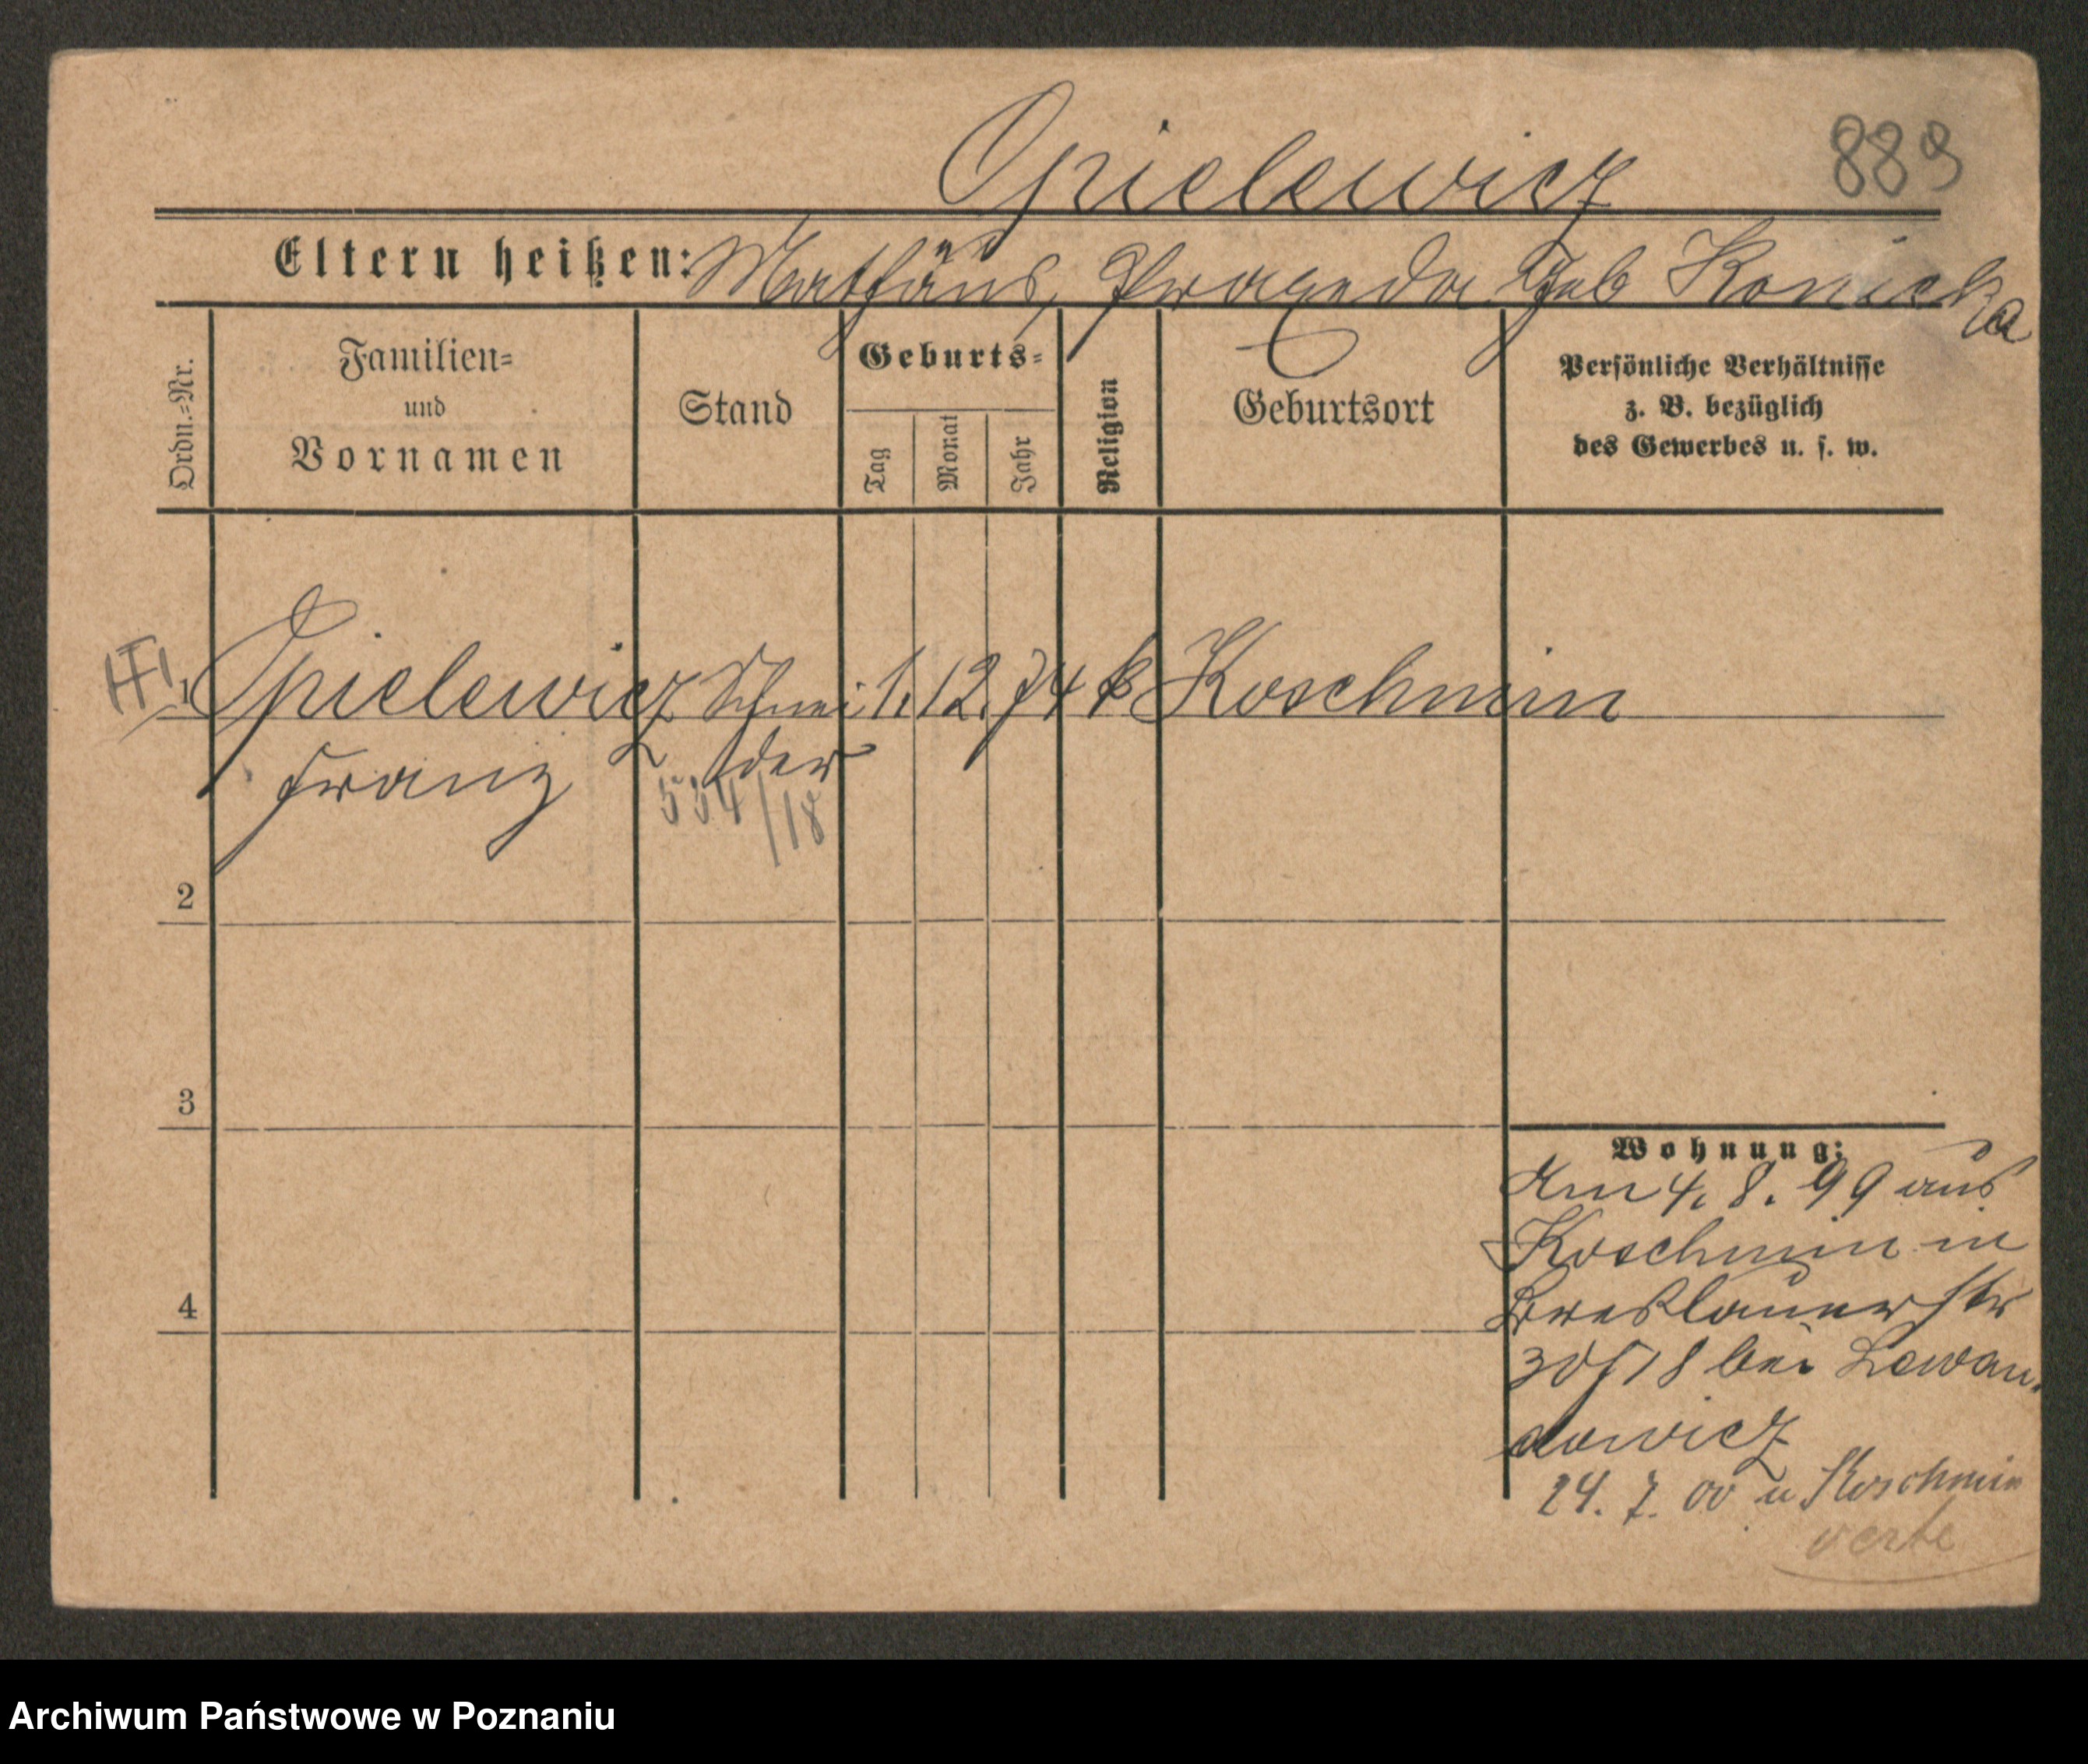 Opielewicz 889
Eltern heißen: Mathäus, Praxeda geb Konicka
Ordn.=Nr.
Familien=
und
Vornamen
Stand
Geburts=
Tag
Monat
Jahr
Religion
Geburtsort
Persönliche Verhältnisse
z. B. bezüglich
des Gewerbes u. s. w.
1 Opielewicz Schnei 1. 12. 74 k Koschmin
Franz der
534/18
2
3
4
Wohnung:
Am 4. 8. 99 aus
Koschmin in
Breslauerstr
30/718 bei Lewan-
dowicz
24. 7. 00 n Koschmin
verte
Archiwum Państwowe w Poznaniu